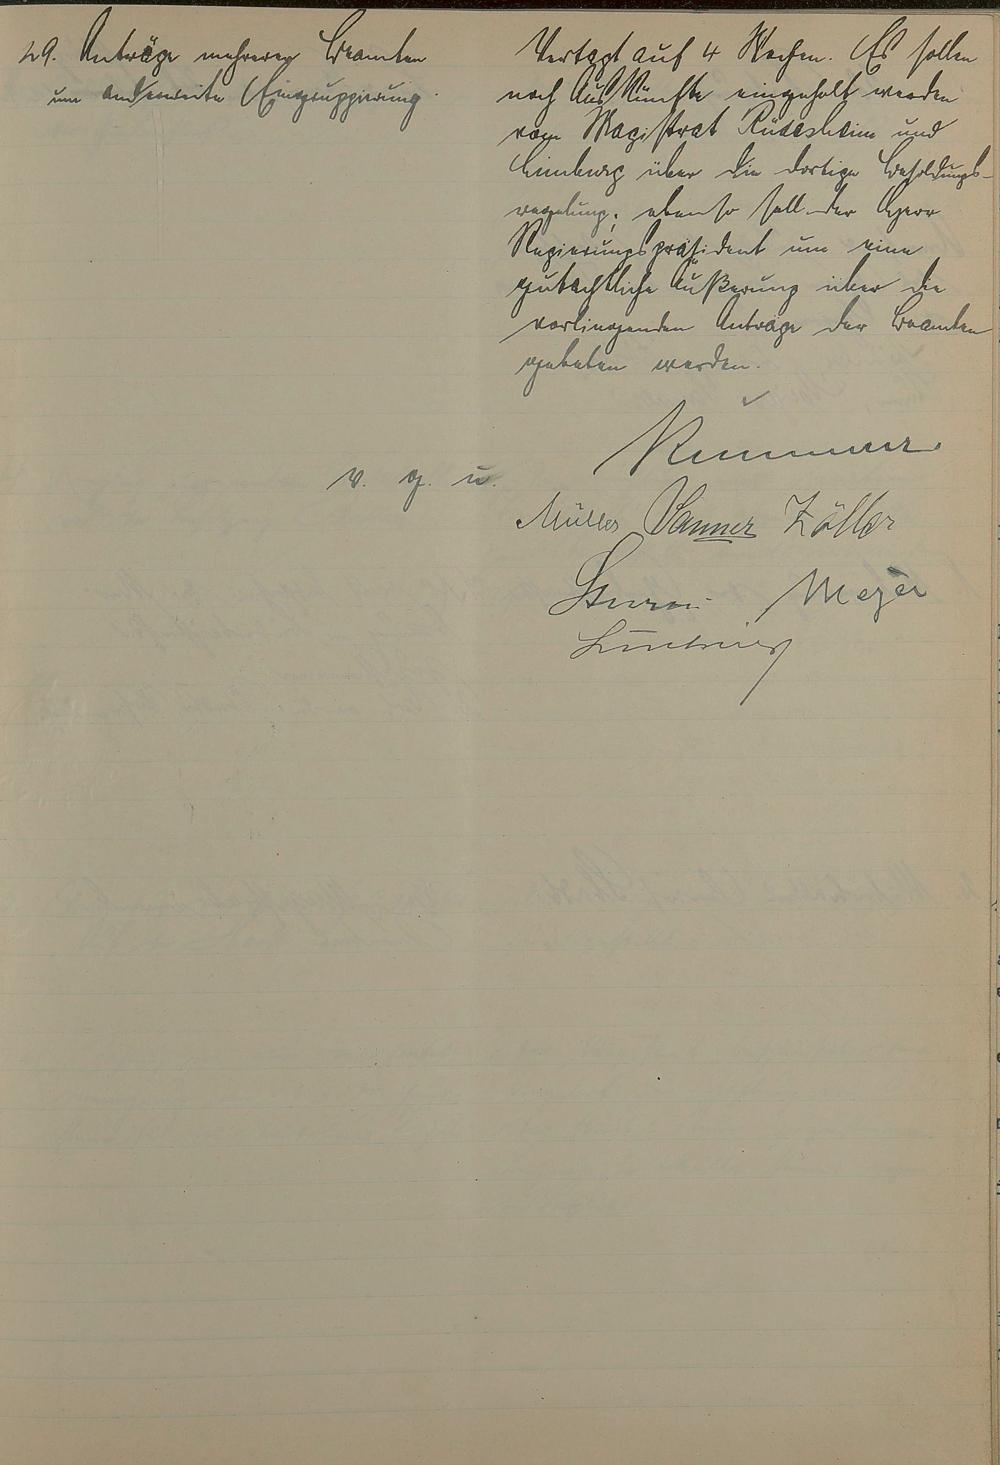 29. Anträge mehrerer Beamten
um anderweite Eingruppierung.
Vertagt auf 4 Wochen. Es sollen
noch Auskünfte eingeholt werden
vom Magistrat Rüdesheim und
Limburg über die dortige Besoldungs-
regelung; ebenso soll der Herr
Regierungspräsident um eine
gutachtliche Äußerung über die
vorliegenden Anträge der Beamten
gebeten werden.
v. g. u.
Müller Zöller
Meyer